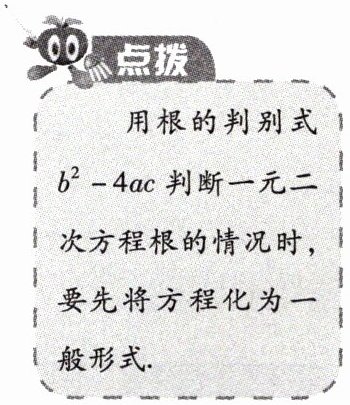 点拨
用根的判别式
b² - 4ac 判断一元二
次方程根的情况时，
要先将方程化为一
般形式.